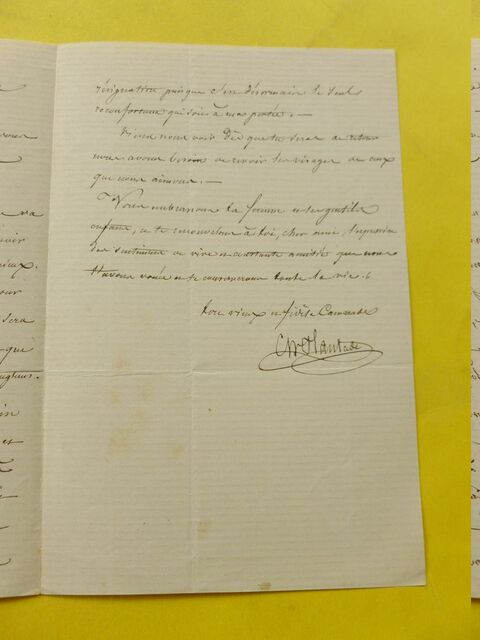 résignation puisque c'en désormain le seul
reconfortant qui soit à ma portée. —
Viens nous voir dès que tu seras de retour
nous avons besoin de revoir les visages de ceux
que nous aimons. —
Nous embrassons ta femme et tes gentils
enfans, et te renouvelons à toi, cher ami, l'expression
des sentimens de vive et constante amitié que nous
t'avons vouée et te conserverons toute la vie.
ton vieux et fidèle Camarade
ra
rieux.
our
sera
qui
in
et
à